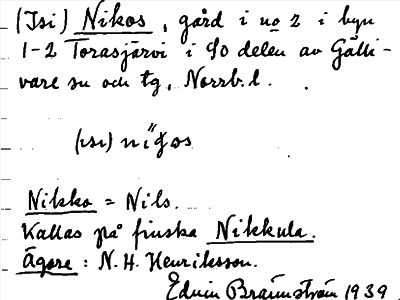 (Isi) Nikos, gård i no 2 i byn
1-2 Torasjärvi i sö delen av Gälli-
vare sn och tg, Norrb. l.
(isi) nikos
Nikko = Nils.
Kallas på finska Nikkula.
Ägare: N. H. Henriksson.
Edvin Brännström 1939